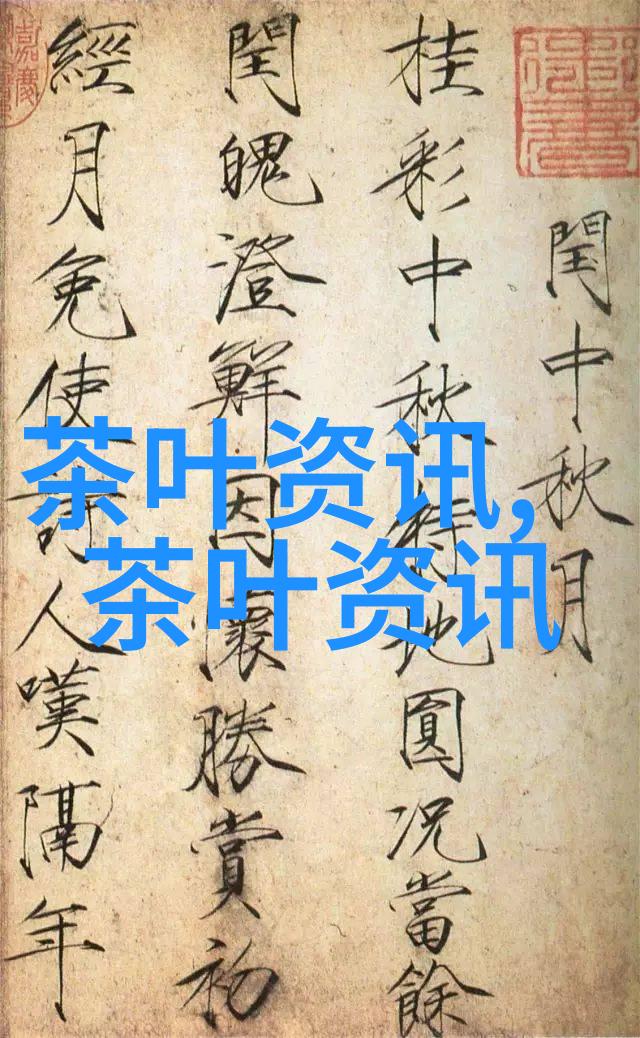 閏中秋月
桂彩中秋特地圓況當餘
閏魄澄鮮因懷勝賞初
經月免使詩人嘆隔年
茶叶资讯,
茶叶资讯